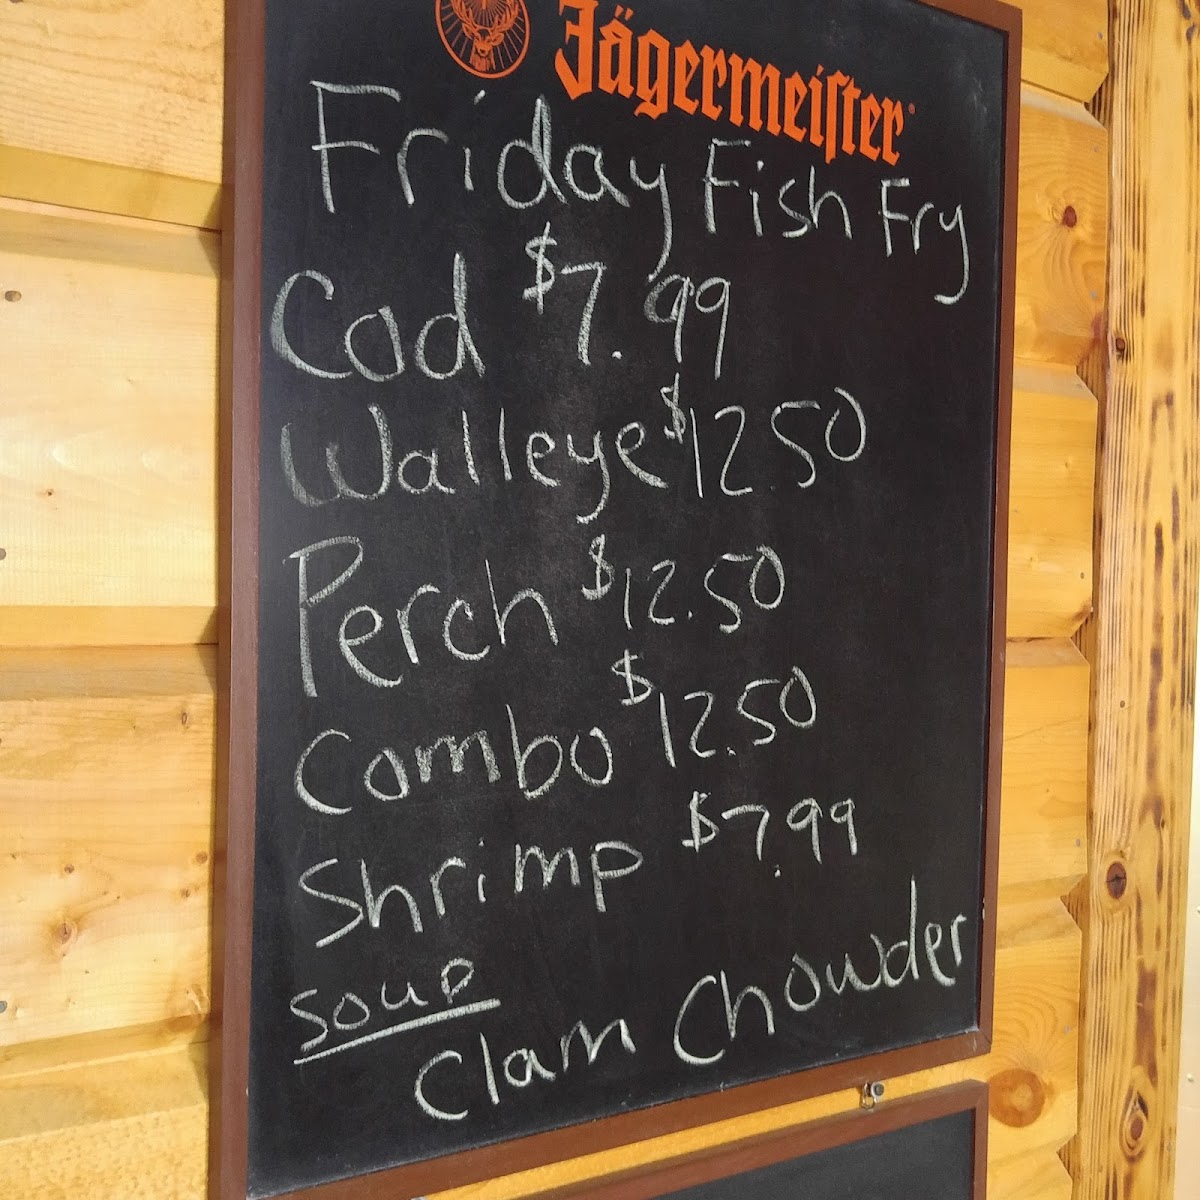 Jägermeister
Friday Fish Fry
Cod $7.99
Walleye $12.50
Perch $12.50
Combo $12.50
Shrimp $7.99
Soup
Clam Chowder